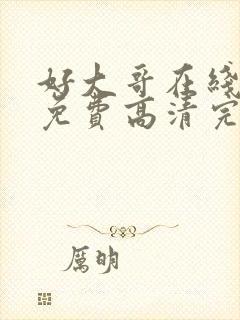 好大哥在线
免费高清完
厲明